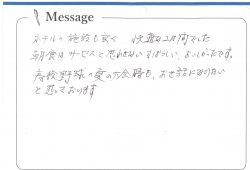 Message
ホテルの施設も良く 快適な2月間でした
朝食はサービスと思わせないすばらしい、おいしかったです。
高校野球の夏の大会時も、お世話になりたい
と思っております